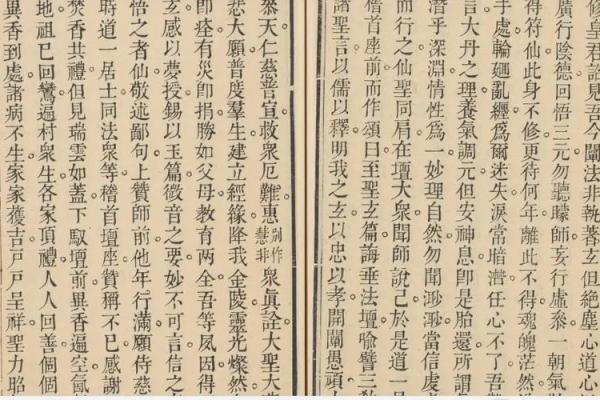 修皇君詣見吾今闡法非執著玄但絶塵心道心
廣行陰德回悟三元勿聽矇師妄行慮叅一朝氣
得符仙此身不修更待何年離此不得魂䰟茫然
手處輪廻亂經爲爾迷失淚常暗潸任心不了吾
言大丹之理養氣調元但安神息卽是胎還所謂
潛乎深淵情性爲一妙理自然勿聞㳽㳽當信處
而行之仙聖同肩在壇大衆聞師說己於是道一
稽首座前而作頌曰至聖玄篇誨垂法壇喩譬三
諸聖言以儒以釋明我之玄以忠以孝開闡愚頑
叅天仁慈善宣救衆厄難惠別作慧非衆眞詮大聖大
悲大願普度羣生建立經緣降我金陵靈光燦然
卽痊有災卽捐勝如父母教育两全吾等夙因得
玄感以夢授錫以玉篇微音之要妙不可言信之
悟之者仙敬述鄙句上贊師前他年行滿願侍慈
時道一居士同法衆等稽首壇座贊稱不已感謝
焚香共禮但見瑞雲如葢下馭壇前異香遍空氤
地祖已回鸞遍村衆生各家頂禮人人回善個個
異香到處諸病不生家家獲吉戸戸呈祥聖力昭